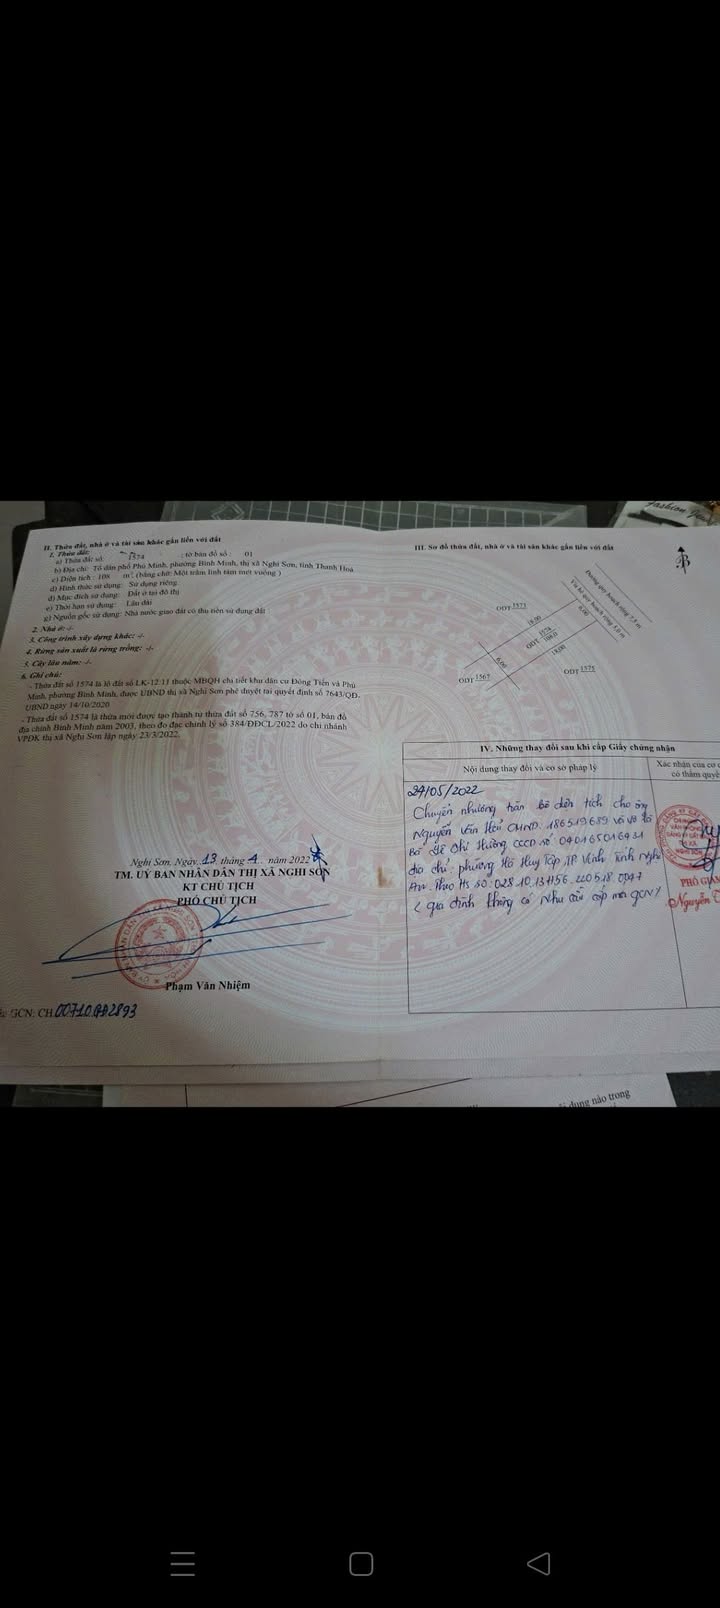 II. Thửa đất, nhà ở và tài sản khác gắn liền với đất
1. Thửa đất:
a) Thửa đất số: 1574 ; tờ bản đồ số : 01
b) Địa chỉ: Tổ dân phố Phú Minh, phường Bình Minh, thị xã Nghi Sơn, tỉnh Thanh Hoá
c) Diện tích : 108 m², (bằng chữ: Một trăm linh tám mét vuông )
d) Hình thức sử dụng: Sử dụng riêng
đ) Mục đích sử dụng: Đất ở tại đô thị
e) Thời hạn sử dụng: Lâu dài
g) Nguồn gốc sử dụng: Nhà nước giao đất có thu tiền sử dụng đất
2. Nhà ở: -/-
3. Công trình xây dựng khác: -/-
4. Rừng sản xuất là rừng trồng: -/-
5. Cây lâu năm: -/-
6. Ghi chú:
- Thửa đất số 1574 là lô đất số LK-12:11 thuộc MBQH chi tiết khu dân cư Đông Tiến và Phú
Minh, phường Bình Minh, được UBND thị xã Nghi Sơn phê duyệt tại quyết định số 7643/QĐ-
UBND ngày 14/10/2020
- Thửa đất số 1574 là thửa mới được tạo thành từ thửa đất số 756, 787 tờ số 01, bản đồ
địa chính Bình Minh năm 2003, theo đo đạc chỉnh lý số 384/ĐĐCL/2022 do chi nhánh
VPĐK thị xã Nghi Sơn lập ngày 23/3/2022.
Nghi Sơn, Ngày 13 tháng 4 năm 2022
TM. UỶ BAN NHÂN DÂN THỊ XÃ NGHI SƠN
KT CHỦ TỊCH
PHÓ CHỦ TỊCH
Phạm Văn Nhiệm
GCN: CH
III. Sơ đồ thửa đất, nhà ở và tài sản khác gắn liền với đất
B
Đường quy hoạch rộng 7.5 m
Vỉa hè quy hoạch rộng 5.0 m
ODT 1573
18.00
6.00
ODT 1574 108.0
18.00
6.00
ODT 1567
ODT 1575
IV. Những thay đổi sau khi cấp Giấy chứng nhận
Nội dung thay đổi và cơ sở pháp lý
Xác nhận của cơ q
có thẩm quyề
24/05/2022
Chuyển nhượng toàn bộ diện tích cho ông
Nguyễn Văn Hếu CMND: 186519689 và vợ là
Bà Lê Thị Hường CCCD số: 040165016931
địa chỉ: phường Hà Huy Tập, TP Vinh, tỉnh Nghệ
An. Theo HS số: 028.10.137156.220518.0047
( gia đình không có nhu cầu cấp mới GCN)
PHÓ GIÁM
Nguyễn
dung nào trong
Fashion